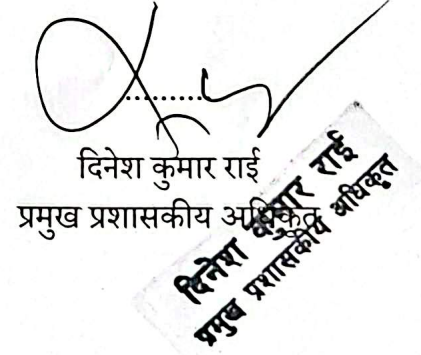 दिनेश कुमार राई
प्रमुख प्रशासकीय अधिकृत
दिनेश कुमार राई
प्रमुख प्रशासकीय अधिकृत